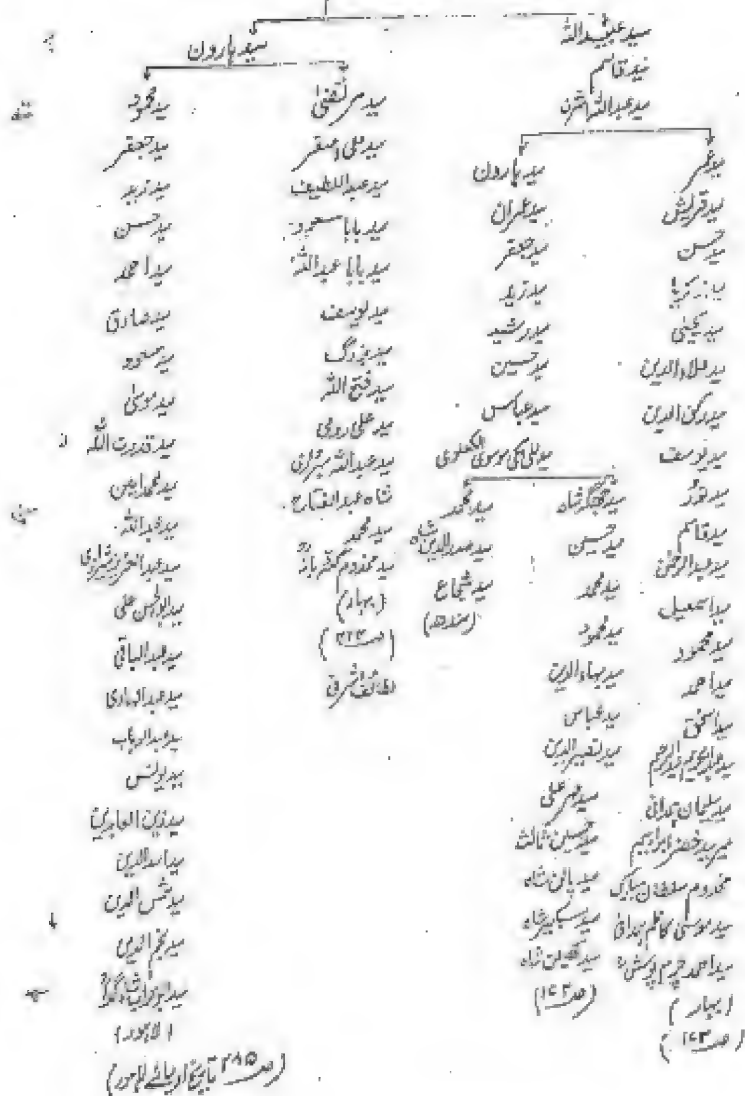 سید عبیداللہ
سید قاسم
سید عبداللہ اشرف
سید عمر
سید قریش
سید حسن
سید زکریا
سید یحییٰ
سید علاءالدین
سید رکن الدین
سید یوسف
سید
سید قاسم
سید عبدالرحمٰن
سید اسمعیل
سید محمود
سید احمد
سید اسحٰق
سید سلیمان ہمدانی
میر سید خضر ابراہیم
مخدوم سلطان مبارک
سید موسیٰ کاظم ہمدانی
سید احمد چرم پوشؒ
(بہار)
(صـ ۱۶۳)
سید ہارون
سید عمران
سید جعفر
سید زید
سید رشید
سید حسین
سید عباس
سید علی مکی موسوی
سید حسین
سید محمد
سید محمود
سید بہاءالدین
سید عباس
سید نصیرالدین
سید علی
سید حسین ثالث
سید شاہ
سید شاہ
سید شاہ
(صـ ۱۶۲)
سید محمد
سید صدرالدین شاہ
سید شجاع
(سندھ)
سید ہارون
سید مرتضیٰ
سید علی اصغر
سید عبداللطیف
سید بابا مسعود
سید بابا عبداللہ
سید یوسف
سید بزرگ
سید فتح اللہ
سید علی رومی
سید عبداللہ شیرازی
شاہ عبدالفتاح
سید محمد
سید مخدوم
(بہار)
لطائف اشرفی
سید محمود
سید جعفر
سید زید
سید حسن
سید احمد
سید صادق
سید مسعود
سید موسیٰ
سید قدرت اللہ
سید محمد امین
سید عبداللہ
سید عبدالعزیز شیرازی
سید ابوالحسن علی
سید عبدالباقی
سید عبدالہادی
سید عبدالوہاب
سید یونس
سید زین العابدین
سید اسدالدین
سید شمس الدین
سید نجم الدین
سید ابو تراب شاہ گداؒ
(لاہور)
(صـ ۲۸۵ تاریخ اولیائے لاہور)